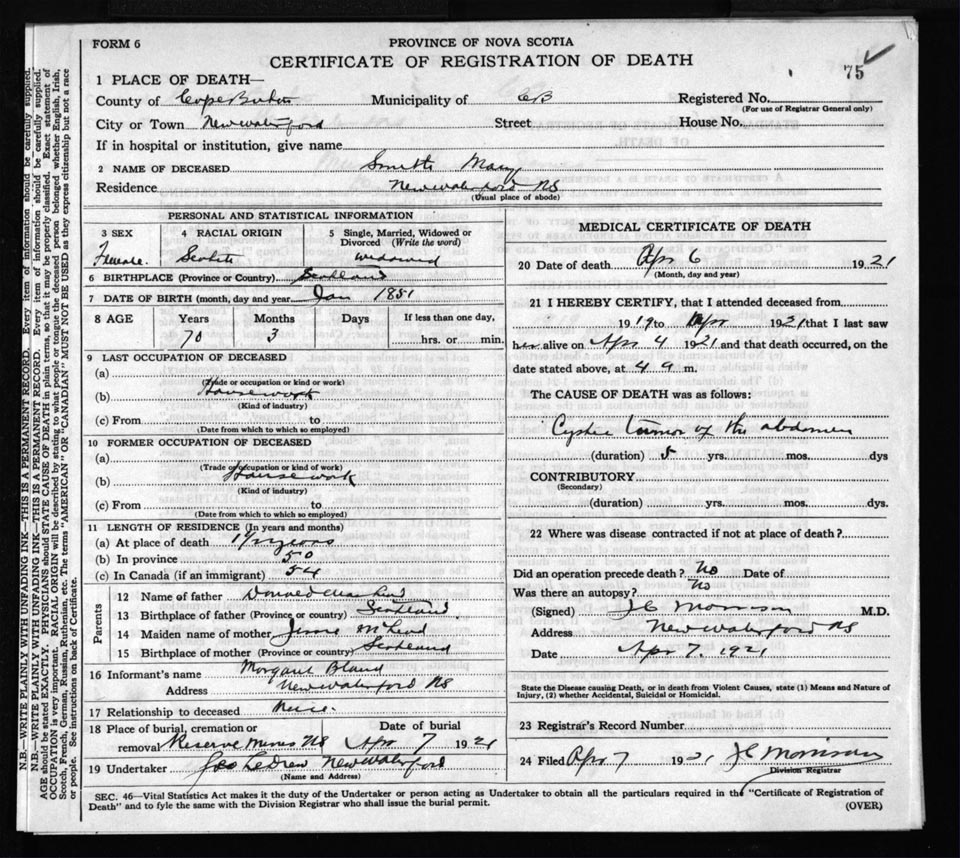 FORM 6
PROVINCE OF NOVA SCOTIA
CERTIFICATE OF REGISTRATION OF DEATH
75
1 PLACE OF DEATH—
County of Cape Breton Municipality of CB Registered No.
(For use of Registrar General only)
City or Town New Waterford Street House No.
If in hospital or institution, give name
2 NAME OF DECEASED Smith Mary
Residence New Waterford NS
(Usual place of abode)
PERSONAL AND STATISTICAL INFORMATION
3 SEX 4 RACIAL ORIGIN 5 Single, Married, Widowed or Divorced (Write the word)
Female Scotch widowed
6 BIRTHPLACE (Province or Country) Scotland
7 DATE OF BIRTH (month, day and year) Jan 1851
8 AGE Years Months Days If less than one day,
70 3 hrs. or min.
9 LAST OCCUPATION OF DECEASED
(a)
(Trade or occupation or kind or work)
(b) Housework
(Kind of industry)
(c) From to
(Date from which to which so employed)
10 FORMER OCCUPATION OF DECEASED
(a)
(Trade or occupation or kind of work)
(b) Housework
(Kind of industry)
(c) From to
(Date from which to which so employed)
11 LENGTH OF RESIDENCE (In years and months)
(a) At place of death years
(b) In province 50
(c) In Canada (if an immigrant) 54
Parents
12 Name of father Donald
13 Birthplace of father (Province or country) Scotland
14 Maiden name of mother McLeod
15 Birthplace of mother (Province or country) Scotland
16 Informant's name Margaret Bland
Address New Waterford NS
17 Relationship to deceased Niece.
18 Place of burial, cremation or Date of burial
removal Reserve Mines NS Apr 7 1921
19 Undertaker Ledrew New Waterford
(Name and Address)
MEDICAL CERTIFICATE OF DEATH
20 Date of death Apr 6 1921
(Month, day and year)
21 I HEREBY CERTIFY, that I attended deceased from
1919 to Apr 1921 that I last saw
her alive on Apr 4 1921 and that death occurred, on the
date stated above, at 4 a m.
The CAUSE OF DEATH was as follows:
Cystic tumor of the abdomen
(duration) 5 yrs. mos. dys
CONTRIBUTORY
(Secondary)
(duration) yrs. mos. dys.
22 Where was disease contracted if not at place of death?
Did an operation precede death? No Date of
Was there an autopsy? No
(Signed) J C Morrison M.D.
Address New Waterford NS
Date Apr 7, 1921
State the Disease causing Death, or in death from Violent Causes, state (1) Means and Nature of
Injury, (2) whether Accidental, Suicidal or Homicidal.
23 Registrar's Record Number
24 Filed Apr 7 1921 J C Morrison
Division Registrar
SEC. 46—Vital Statistics Act makes it the duty of the Undertaker or person acting as Undertaker to obtain all the particulars required in the "Certificate of Registration of
Death" and to fyle the same with the Division Registrar who shall issue the burial permit. (OVER)
N.B.—WRITE PLAINLY WITH UNFADING INK—THIS IS A PERMANENT RECORD. Every item of information should be carefully supplied.
N.B.—WRITE PLAINLY WITH UNFADING INK—THIS IS A PERMANENT RECORD. Every item of information should be carefully supplied.
AGE should be stated EXACTLY. PHYSICIANS should STATE CAUSE OF DEATH in plain terms, so that it may be properly classified. Exact statement of
OCCUPATION is very important. RACIAL ORIGIN will be described by stating to what people or tongue the deceased person belonged whether English, Irish,
Scotch, French, German, Russian, Ruthenian, etc. The terms "AMERICAN" OR "CANADIAN" MUST NOT BE USED as they express citizenship but not a race
or people. See instructions on back of Certificate.